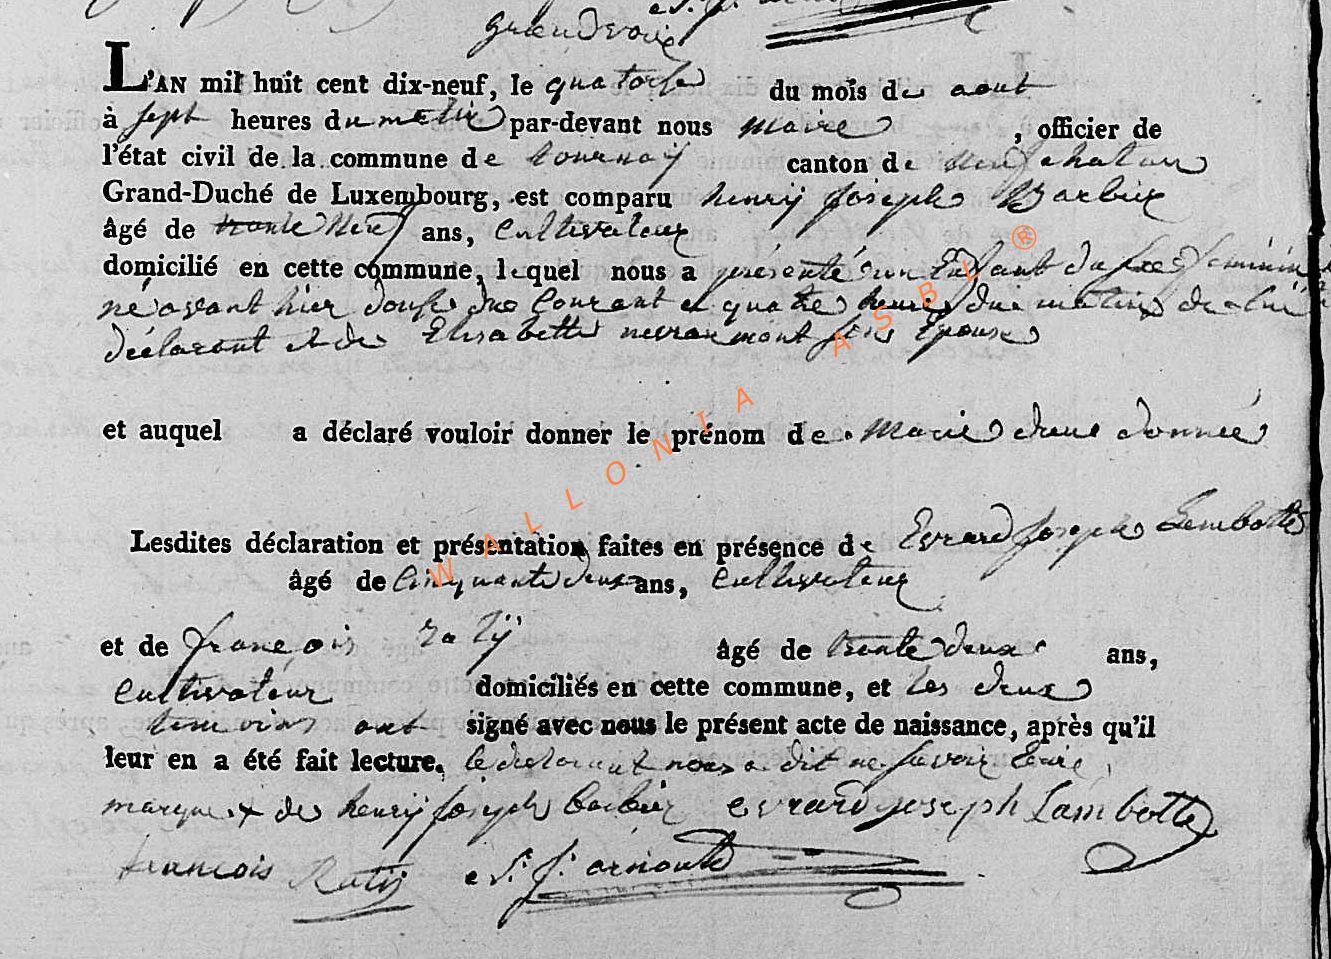 grandvoir
L'AN mil huit cent dix-neuf, le quatorse du mois de aout
à sept heures du matin par-devant nous maire , officier de
l'état civil de la commune de tournay canton de neufchateau
Grand-Duché de Luxembourg, est comparu henrÿ Joseph Barbiex
âgé de trente neuf ans, Cultivateur
domicilié en cette commune, lequel nous a présenté un Enfant du sexe feminin
né avant hier douse du Courant a quatre heures du matin de lui
déclarant et de Elisabette neuraumont son Epouse
et auquel a déclaré vouloir donner le prénom de Marie dieu donnée
Lesdites déclaration et présentation faites en présence de Evrard Joseph Lambotte
âgé de Cinquante deux ans, Cultivateur
et de françois ratÿ âgé de trente deux ans,
Cultivateur domiciliés en cette commune, et les deux
temoins ont signé avec nous le présent acte de naissance, après qu'il
leur en a été fait lecture. le declarant nous a dit ne savoir Ecrire
marque + de henrÿ joseph barbiex evrard joseph Lambotte
francois Ratÿ e.S. j. arnould
WALLONIA ASBL ®